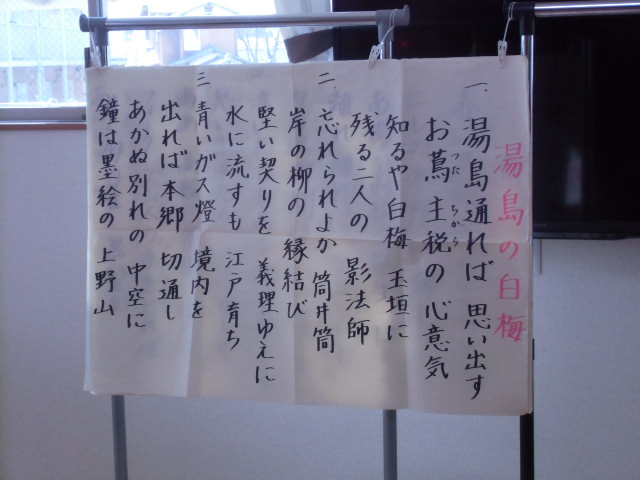 湯島の白梅
一、湯島通れば 思い出す
お蔦主税の 心意気
つた ちから
知るや白梅 玉垣に
残る二人の 影法師
二 忘れられよか 筒井筒
岸の柳の 縁結び
堅い契りを 義理ゆえに
水に流すも 江戸育ち
三 青いガス燈 境内を
出れば本郷 切通し
あかぬ別れの 中空に
鐘は墨絵の 上野山